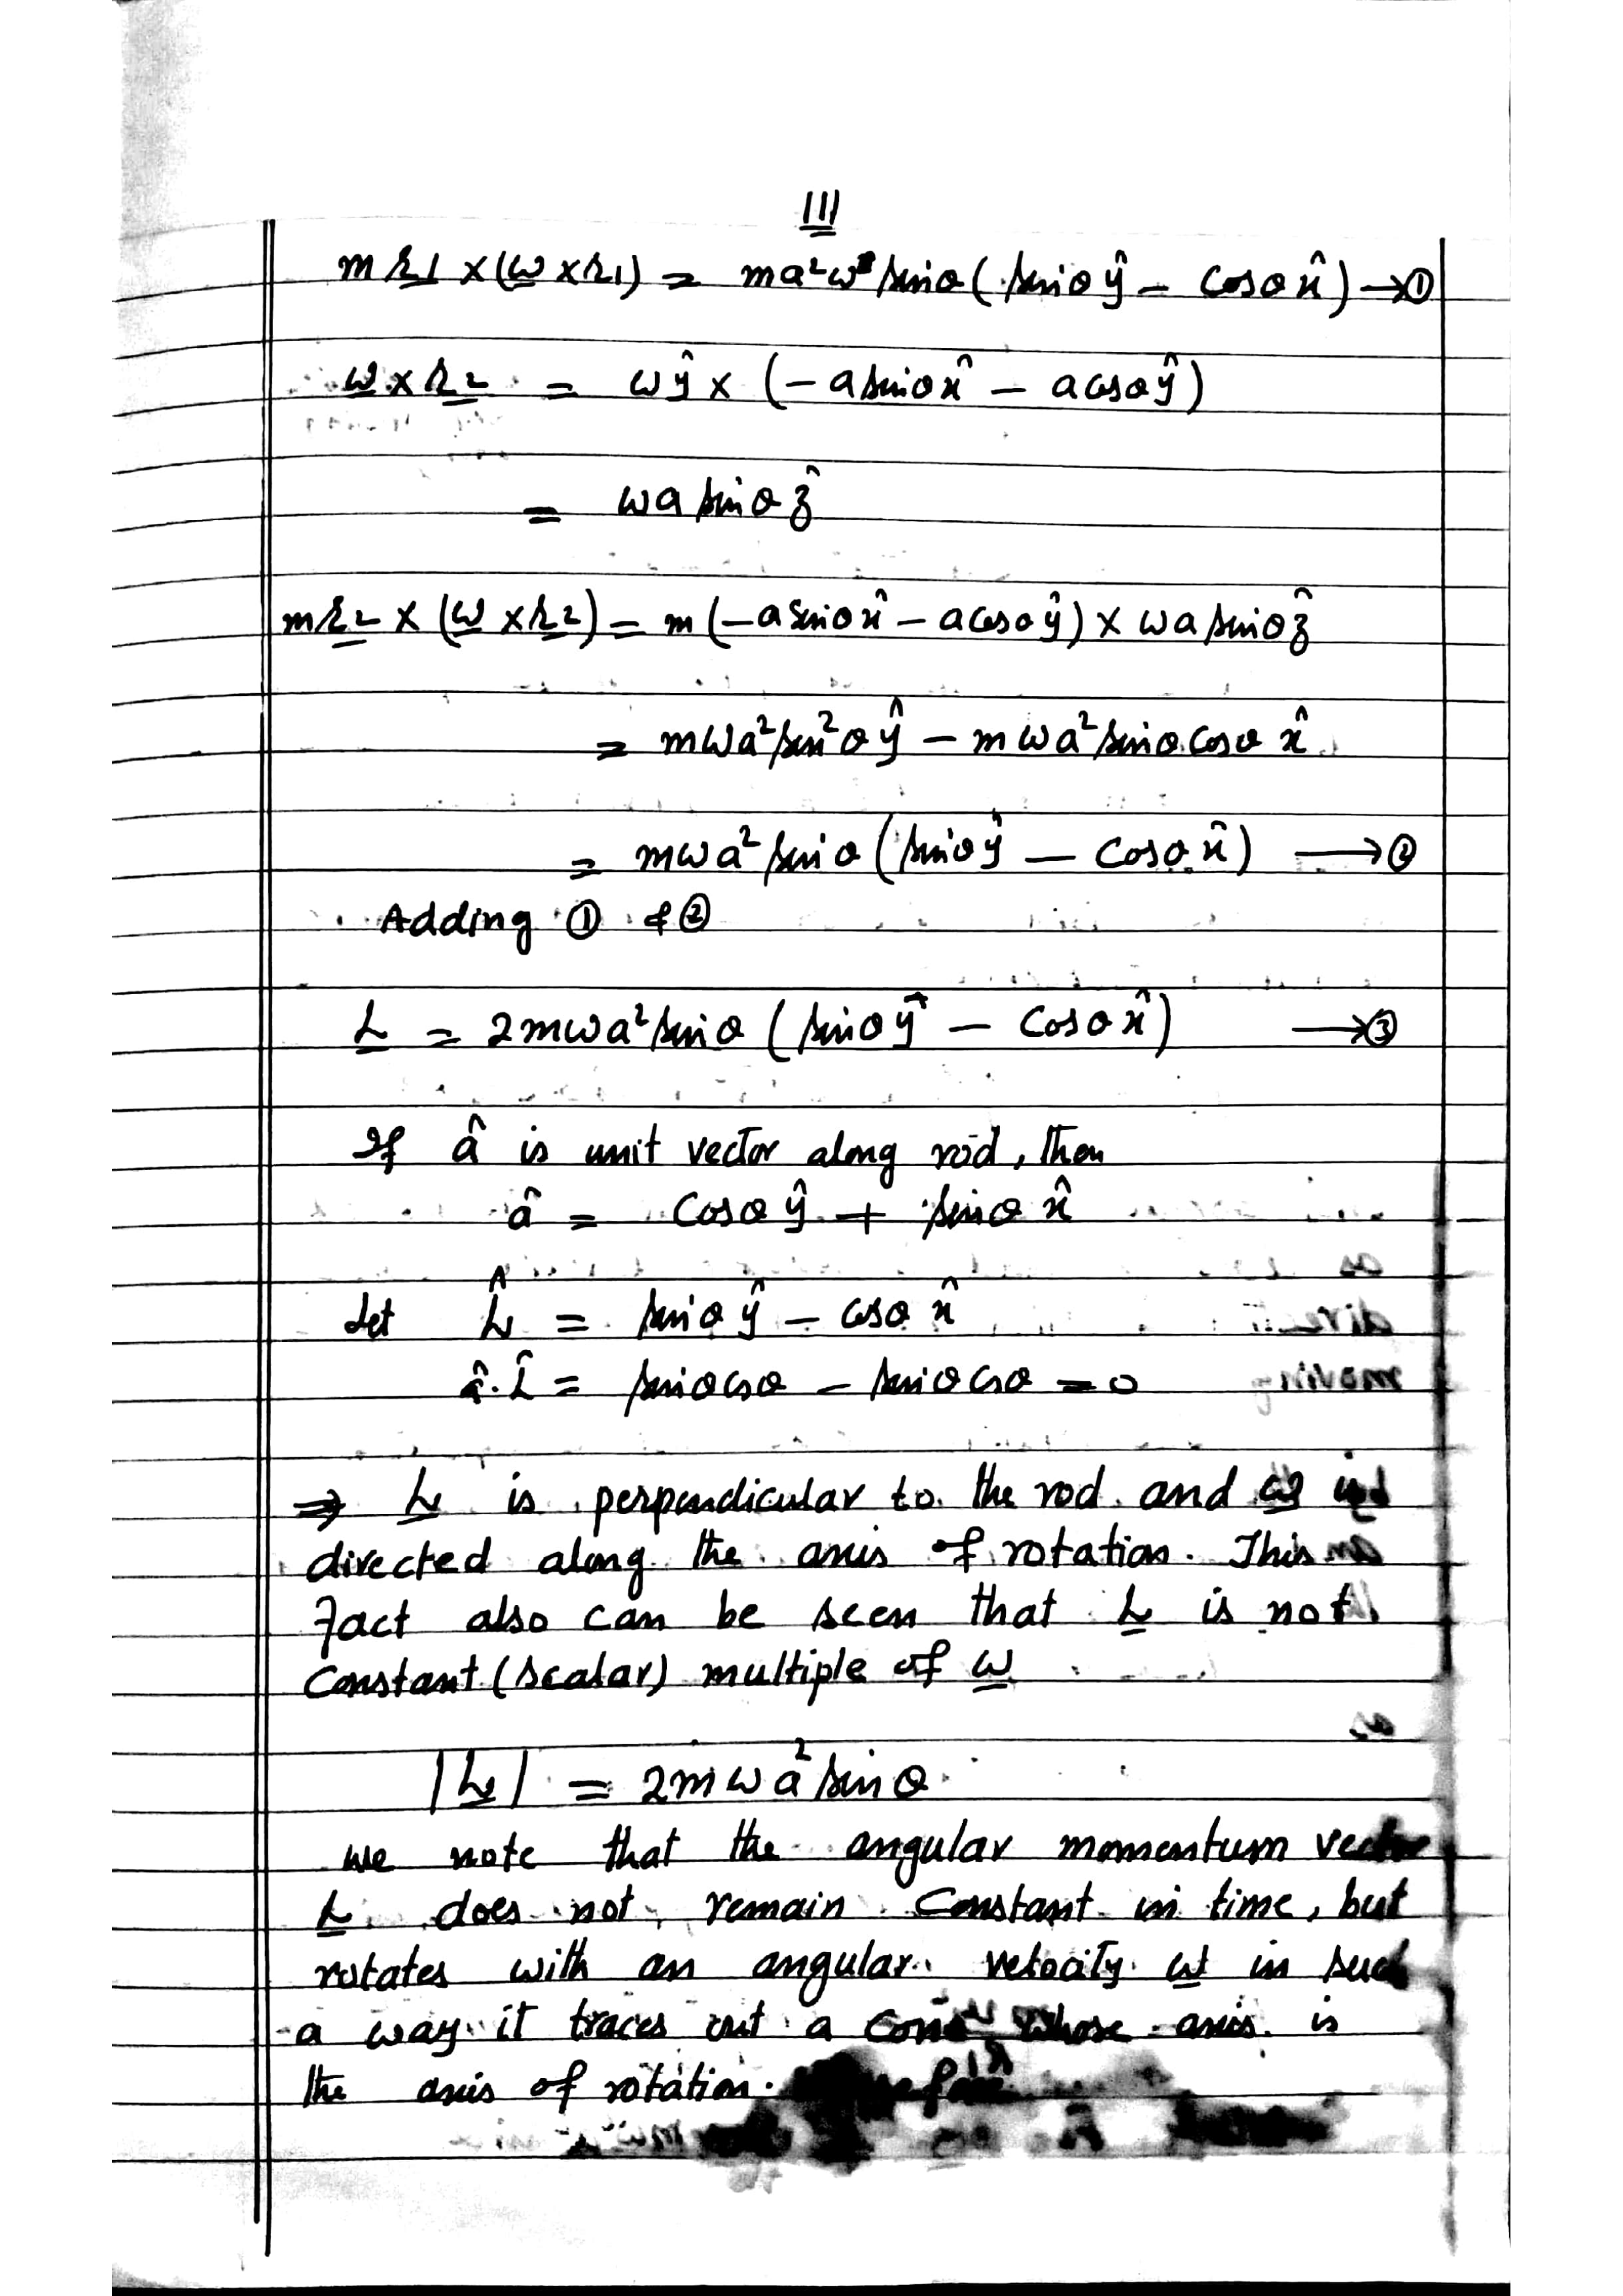 111
m r1 × (ω × r1) = ma²ω sinθ ( sinθ ŷ – cosθ x̂ ) → ①
ω × r2 = ω ŷ × ( – a sinθ x̂ – a cosθ ŷ )
= ω a sinθ ẑ
m r2 × (ω × r2) = m ( – a sinθ x̂ – a cosθ ŷ ) × ω a sinθ ẑ
= mωa² sin²θ ŷ – mωa² sinθ cosθ x̂
= mωa² sinθ ( sinθ ŷ – cosθ x̂ ) → ②
Adding ① & ②
L = 2mωa² sinθ ( sinθ ŷ – cosθ x̂ ) → ③
If â is unit vector along rod, then
â = cosθ ŷ + sinθ x̂
Let L̂ = sinθ ŷ – cosθ x̂
â . L̂ = sinθ cosθ – sinθ cosθ = 0
⇒ L is perpendicular to the rod and ω is
directed along the axis of rotation. This
fact also can be seen that L is not
constant (scalar) multiple of ω
|L| = 2mωa² sinθ
we note that the angular momentum vector
L does not remain constant in time, but
rotates with an angular velocity ω in such
a way it traces out a cone whose axis is
the axis of rotation.